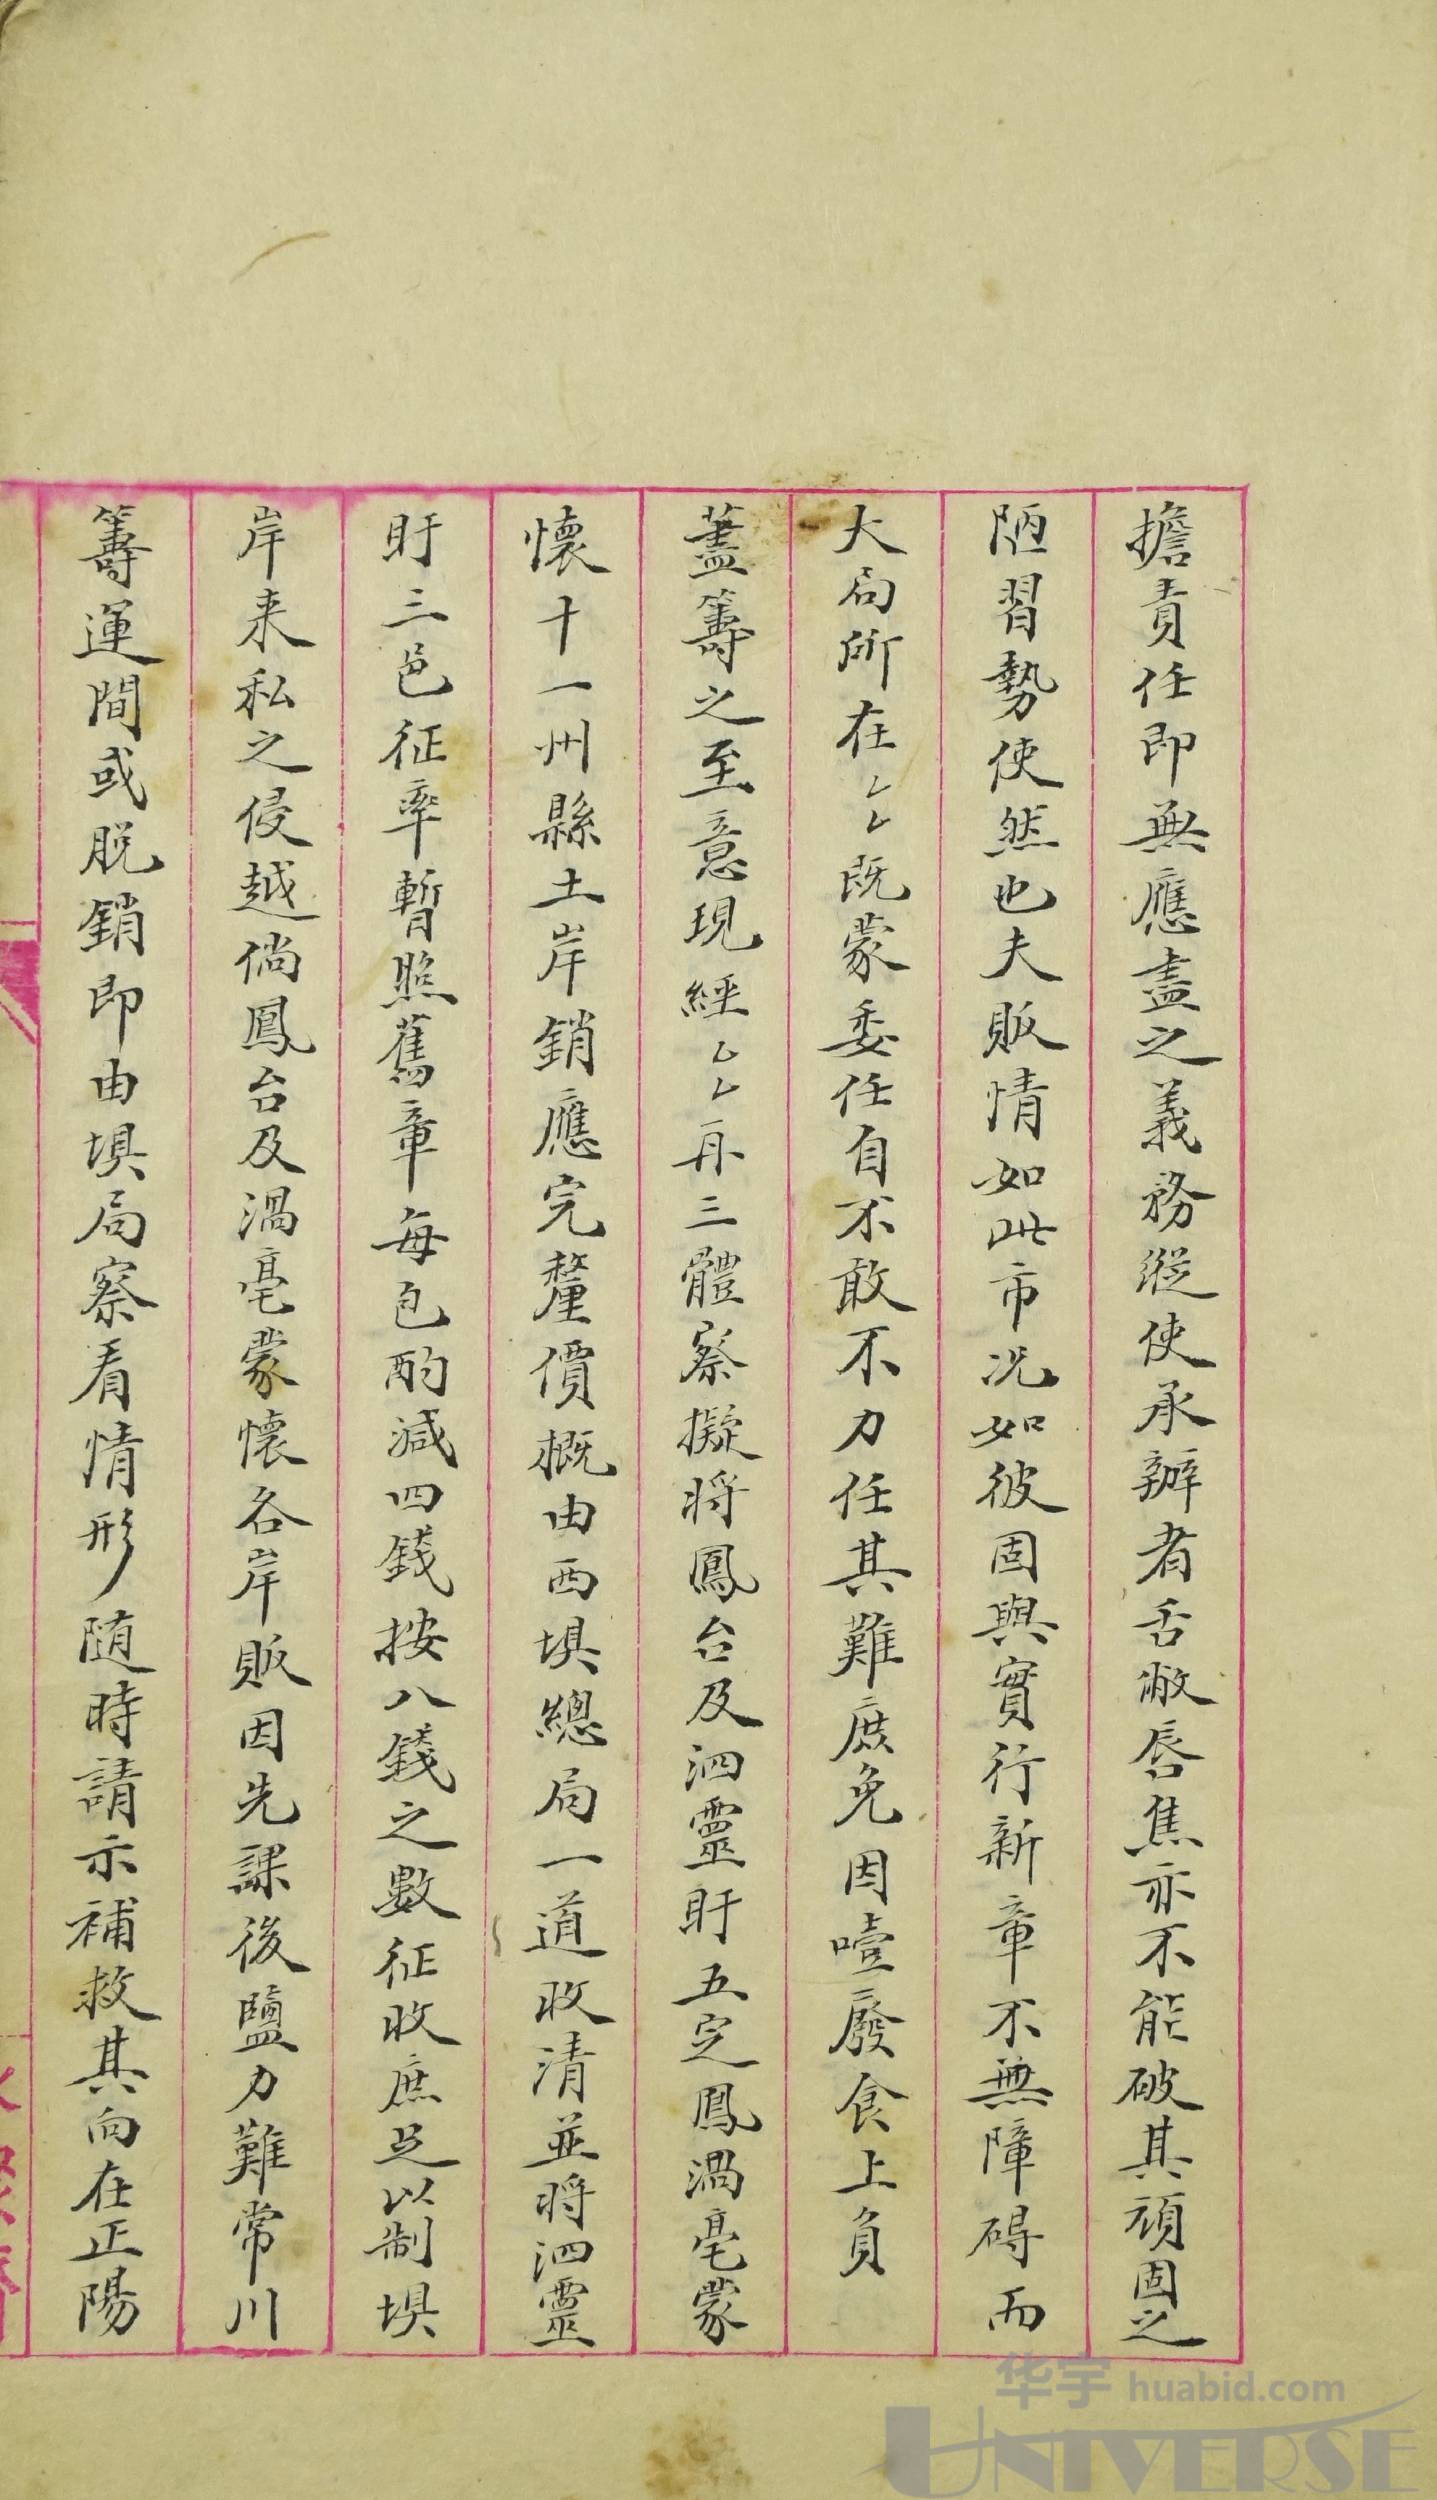 擔責任即無應盡之義務縱使承辦者舌敝唇焦亦不能破其頑固之
陋習勢使然也夫販情如此市况如彼固與實行新章不無障碍而
大局所在ㄥㄥ既蒙委任自不敢不力任其難庶免因噎廢食上負
藎籌之至意現經ㄥㄥ再三體察擬將鳳台及泗靈盱五定鳳渦亳蒙
懷十一州縣土岸銷應完釐價概由西垻總局一道收清並將泗靈
盱三邑征率暫照舊章每包酌減四錢按八錢之數征收庶足以制垻
岸来私之侵越倘鳳台及渦亳蒙懷各岸販因先課後鹽力難常川
籌運間或脱銷即由垻局察看情形随時請示補救其向在正陽
华宇 huabid.com
UNIVERSE